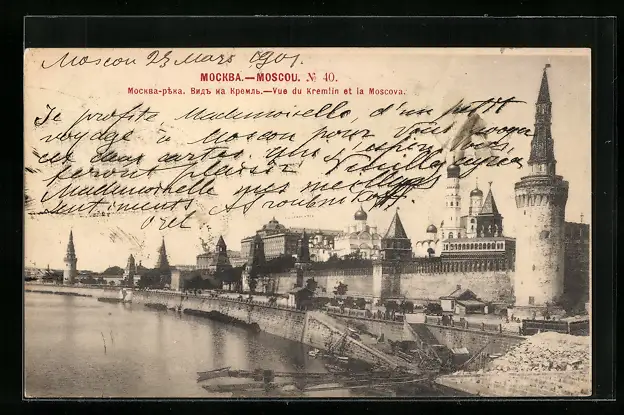 Moscou 23 Mars 1901.
МОСКВА.—MOSCOU. № 40.
Москва-рѣка. Видъ на Кремль.—Vue du Kremlin et la Moscova.
Je profite Mademoiselle, d'un petit
voyage à Moscou pour vous
ces deux cartes, qui j'espère vous
feront plaisir. Veuillez agréer,
Mademoiselle mes meilleurs
sentiments